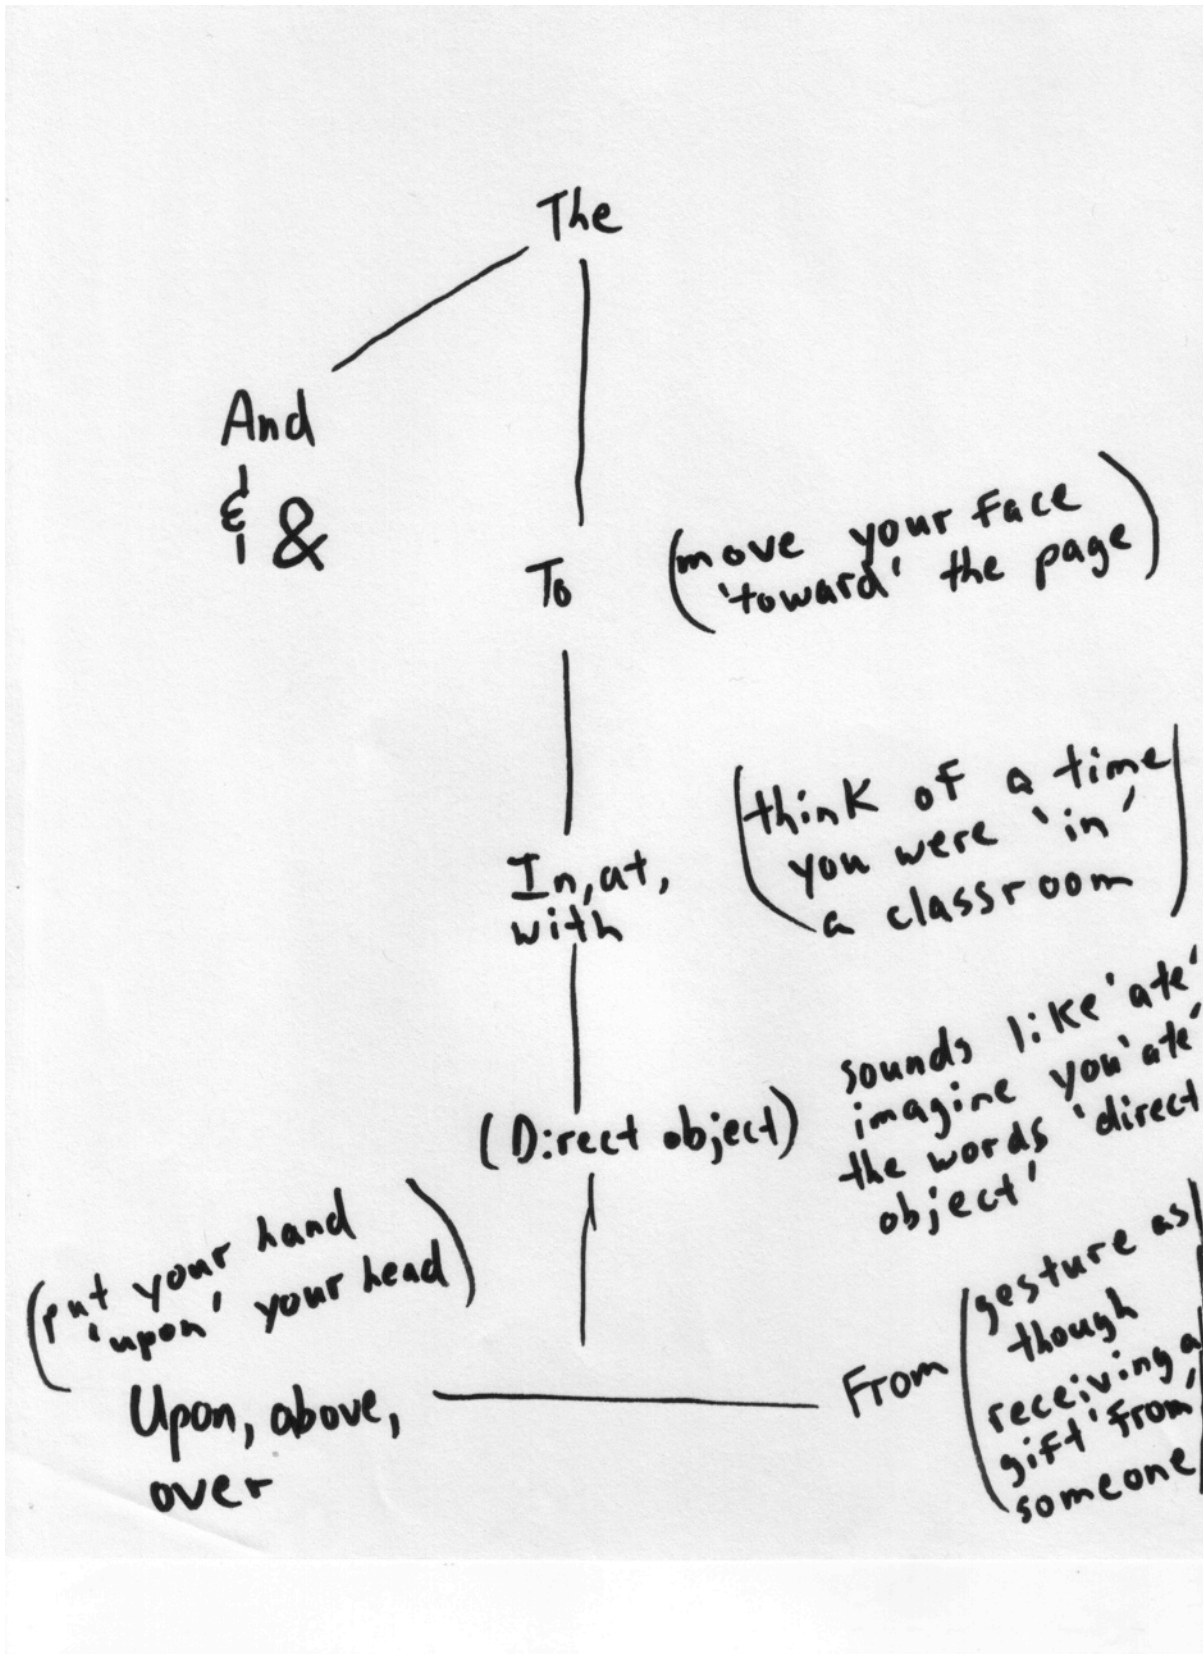 The
And
& &
To
(move your face
'toward' the page)
(think of a time
you were 'in'
a classroom)
In, at,
with
sounds like 'ate'
imagine you 'ate'
the words 'direct
object'
(Direct object)
(put your hand
'upon' your head)
Upon, above,
over
From
(gesture as
though
receiving a
gift 'from'
someone)